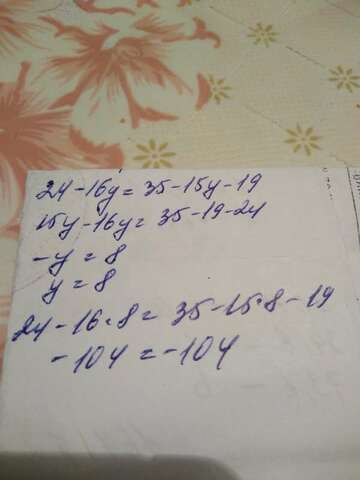 24-16y=35-15y-19
15y-16y=35-19-24
-y=8
y=8
24-16·8=35-15·8-19
-104=-104